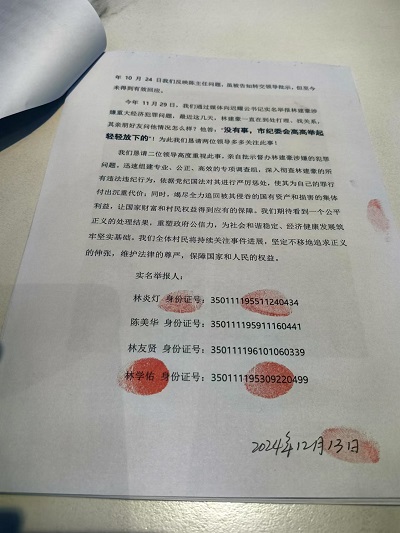 年 10 月 24 日我们反映陈主任问题，虽被告知转交领导批示，但至今
未得到有效回应。
今年 11 月 29 日，我们通过媒体向迟耀云书记实名举报林建豪涉
嫌重大经济犯罪问题，最近这几天，林建豪一直在到处打理、找关系，
其亲朋好友问他情况怎么样？他答，"没有事，市纪委会高高举起
轻轻放下的"！为此我们恳请两位领导多多关注此事！
我们恳请二位领导高度重视此事，亲自批示督办林建豪涉嫌的犯罪
问题，迅速组建专业、公正、高效的专项调查组，深入彻查林建豪的所
有违法违纪行为，依据党纪国法对其进行严厉惩处，使其为自己的罪行
付出沉重代价；同时，竭尽全力追回被其侵吞的国有资产和损害的集体
利益，让国家财富和村民权益得到应有的保障。我们期待看到一个公平
正义的处理结果，重塑政府公信力，为社会和谐稳定、经济健康发展筑
牢坚实基础。我们全体村民将持续关注事件进展，坚定不移地追求正义
的伸张，维护法律的尊严，保障国家和人民的权益。
实名举报人：
林炎灯 身份证号：350111195511240434
陈美华 身份证号：350111195911160441
林友贤 身份证号：350111196101060339
林学祐 身份证号：350111195309220499
2024年12月13日